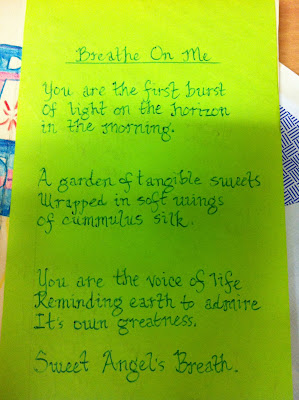 Breathe On Me
You are the first burst
of light on the horizon
in the morning.
A garden of tangible sweets
Wrapped in soft wings
of cummulus silk.
You are the voice of life
Reminding earth to admire
It's own greatness.
Sweet Angel's Breath.